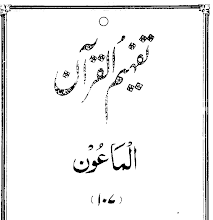 تفہیم القرآن
الْمَاعُوْن
(۱۰۷)